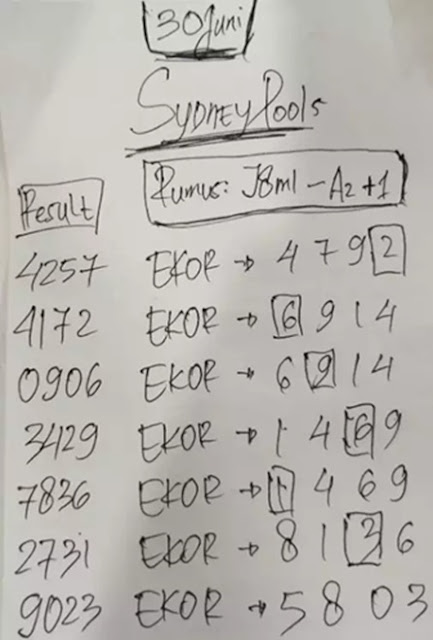 30 Juni
SYDNEY Pools
Rumus: J8ml - A2 + 1
Result
4257 EKOR → 4 7 9 2
4172 EKOR → 6 9 1 4
0906 EKOR → 6 9 1 4
3429 EKOR → 1 4 6 9
7836 EKOR → 1 4 6 9
2731 EKOR → 8 1 3 6
9023 EKOR → 5 8 0 3